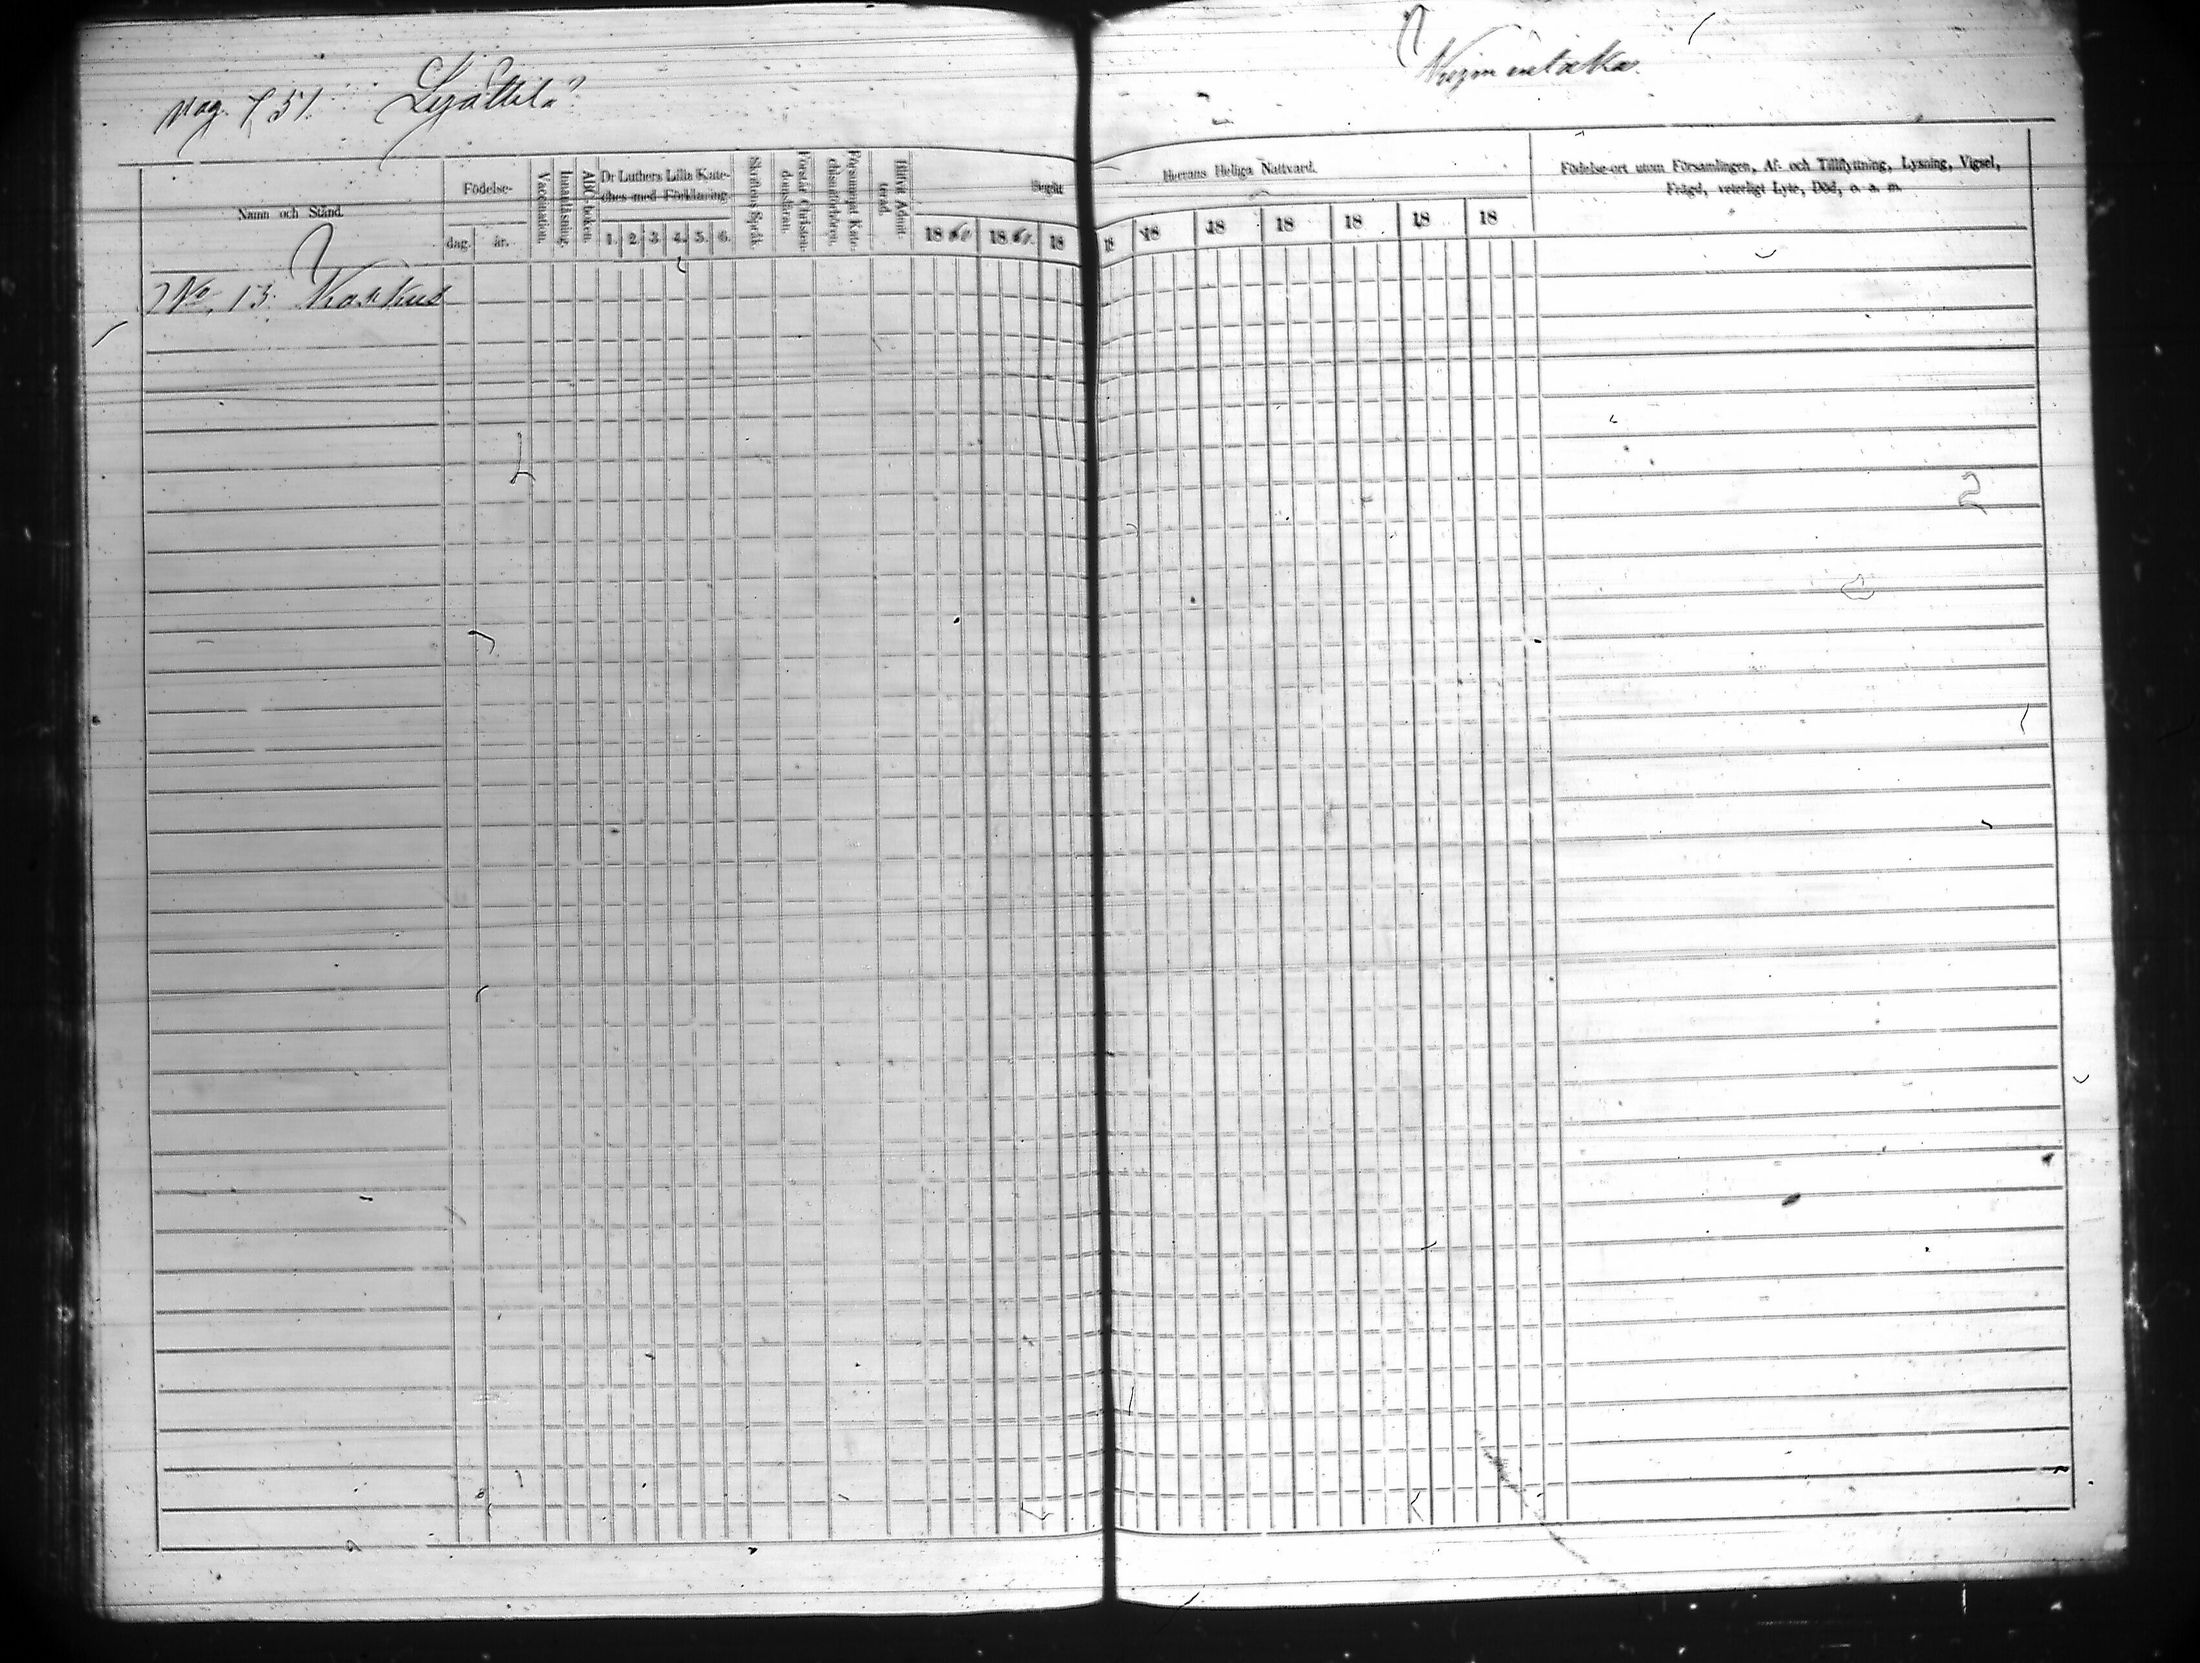 pag. 751. Lyöttilä
Namn och Stånd.
Födelse-
dag.
år.
Vaccination.
Innanläsning.
ABC-boken.
Dr Luthers Lilla Kate-
ches med Förklaring.
1. 2. 3. 4. 5. 6.
Skriftens Språk.
Förstår Christen-
domsläran.
Försummat Kate-
chismiförhören.
Blifvit Admit-
terad.
Begått
18 60 18 61. 18
No. 13. Kaukus
Herrans Heliga Nattvard.
18 18 18 18 18 18 18
Födelse-ort utom Församlingen, Af- och Tillflyttning, Lysning, Vigsel,
Frägd, veterligt Lyte, Död, o. s. m.